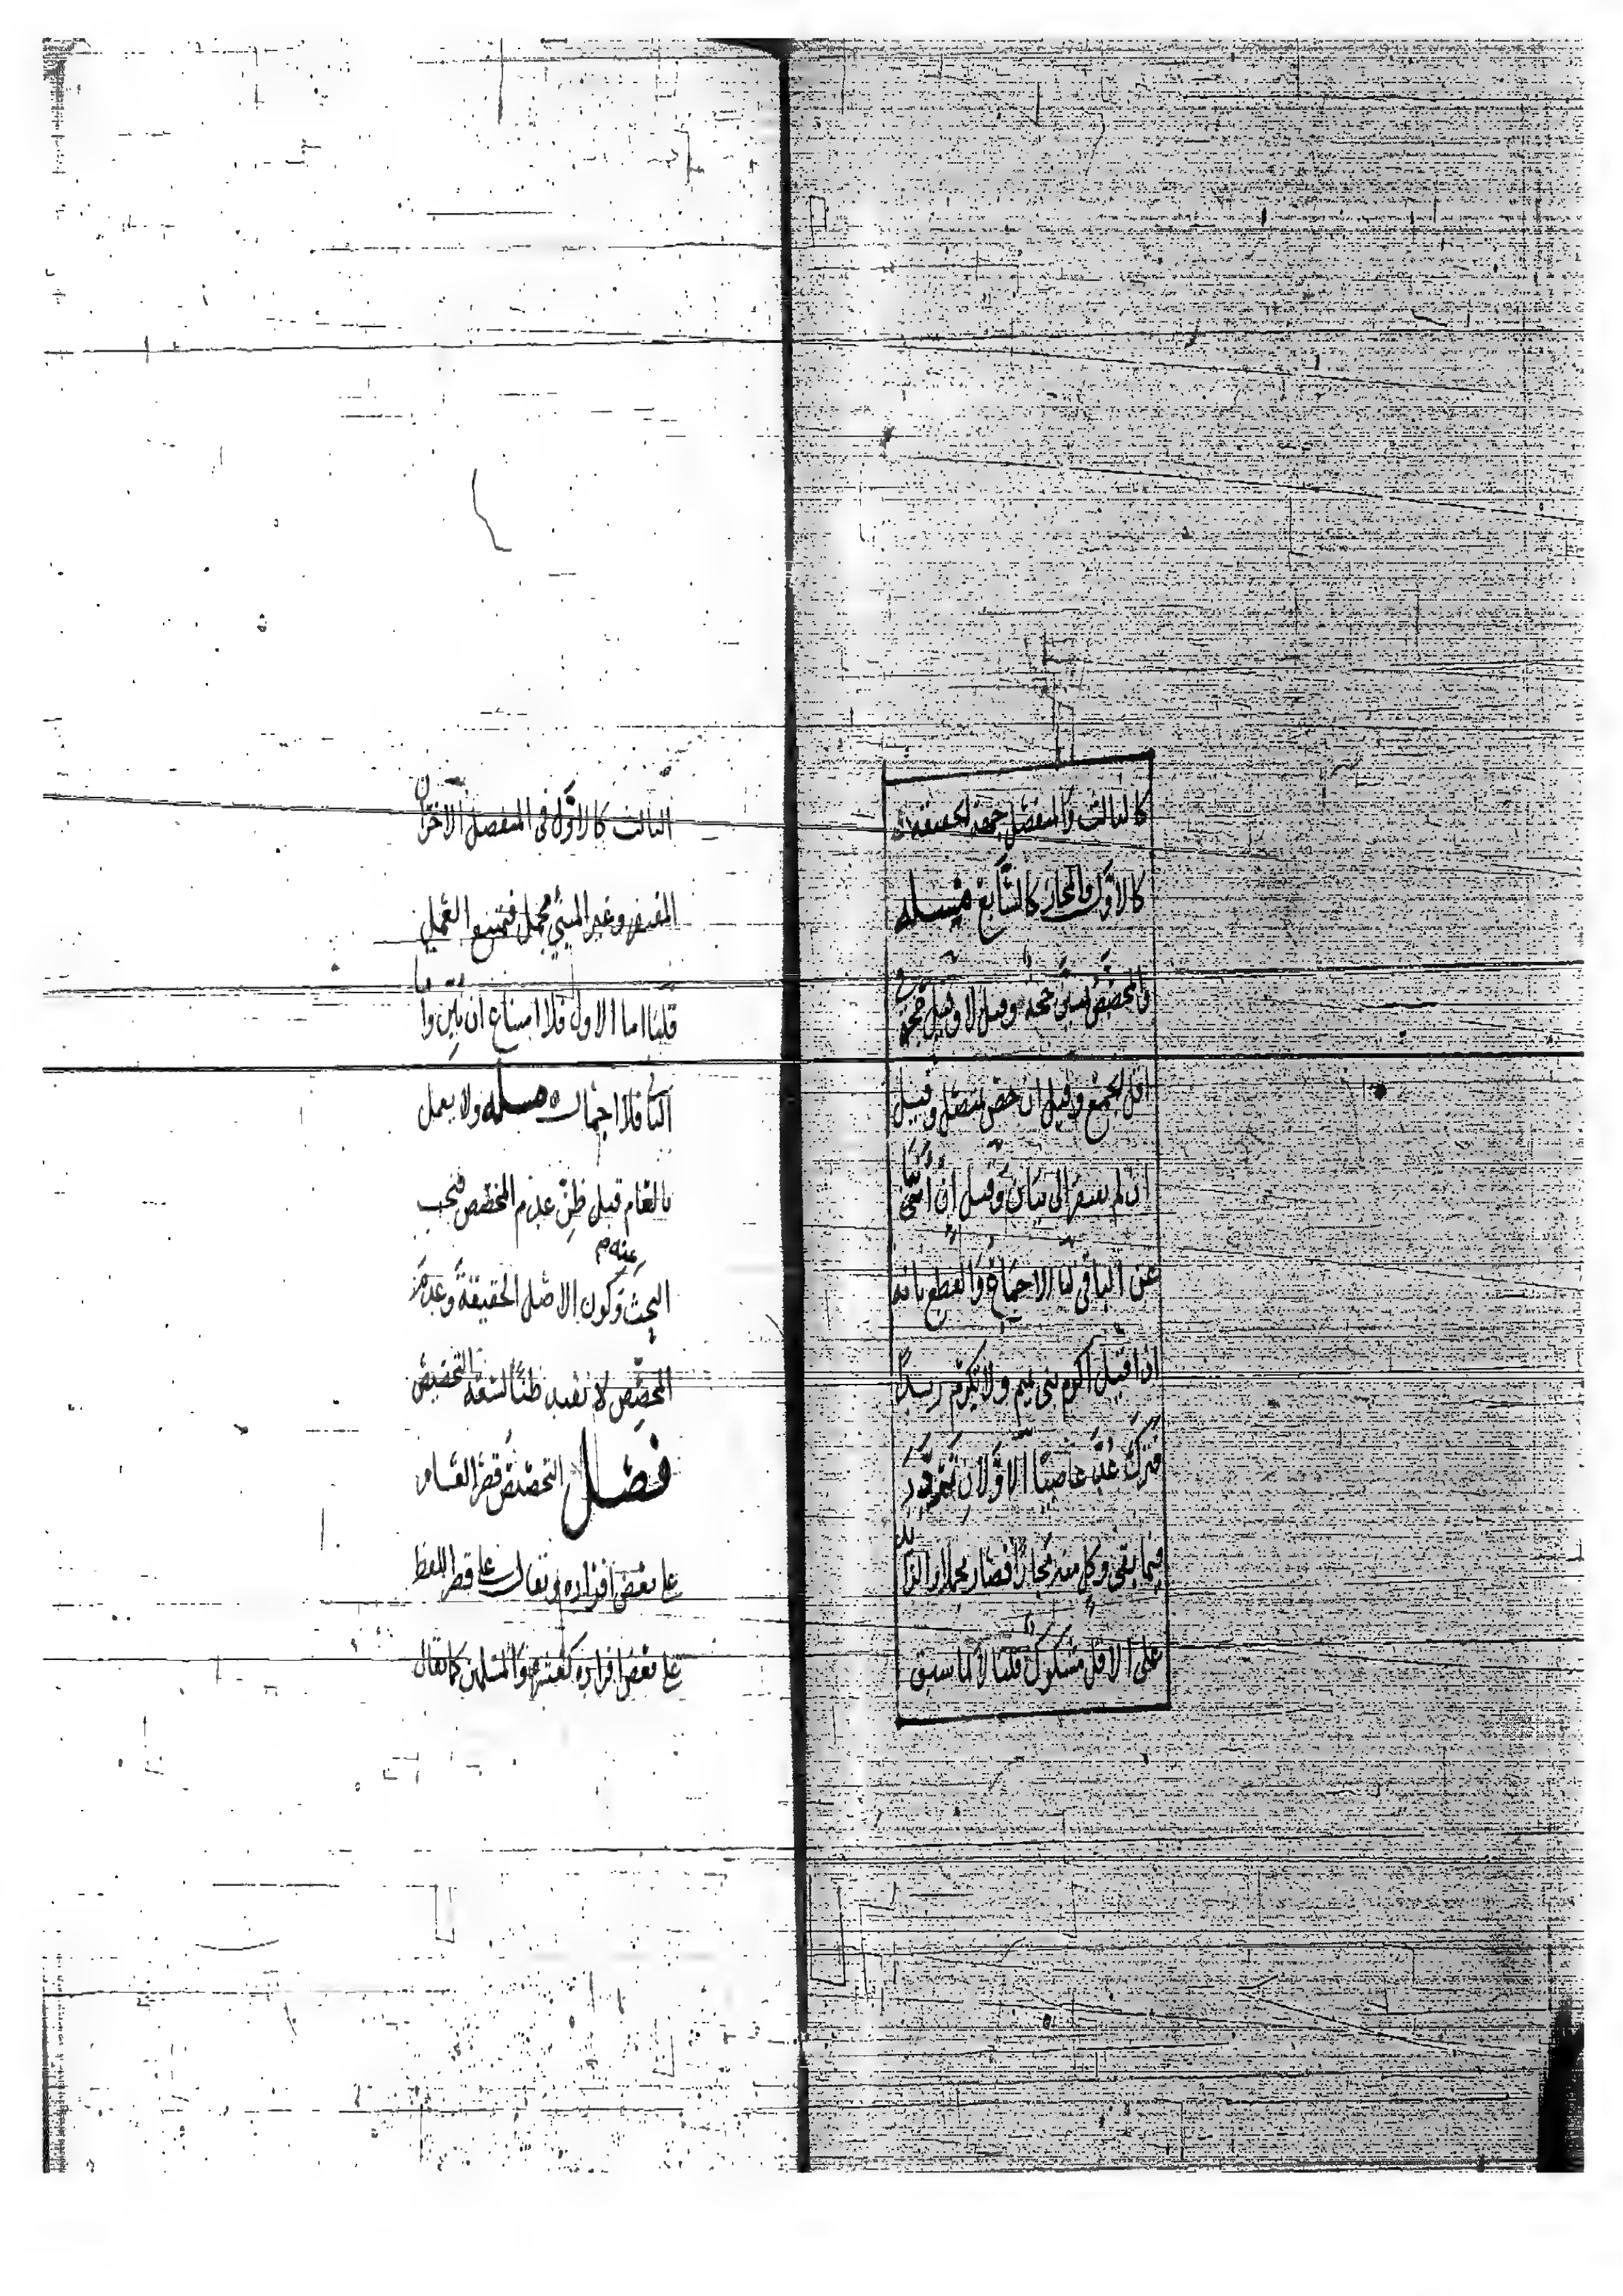 كالثالث والمنفصل جهة الحقيقة
كالأوّل والمجاز كالسّابع مسئله
والمخصّص بمبيّن حجّة وقيل لا وقيل حجّة
اقل الجمع وقيل ان خصّ بمتصل وقيل
ان لم يفتقر الى بيان وقيل إن أنبأ
عن الباقي لنا الاجماع والقطع بانه
اذا قيل اكرم بني تميم ولا تكرم زيدًا
فترك عُدّ عاصيًا الاوّلان
فيما بقي وكل منه مجازًا فصار مجملا والزائد
على الاقل مشكوك قلنا لا لما سبق
الثالث كالاوّل في المنفصل الاخران
المفتقر وغير المنبئ مجمل فيمتنع العمل
قلنا اما الاول فلا امتناع ان بيّن واما
الثاني فلا اجمال مسئله ولا يعمل
بالعام قبل ظنّ عدم المخصّص فيجب
البحث عنه وكون الاصل الحقيقة وعدم
المخصّص لا يفيد ظنًّا لسعة التخصيص
فصل التخصيص قصر العام
على بعض افراده ويقال على قصر اللفظ
على بعض افراده كعشرة والمسلمين كما يقال